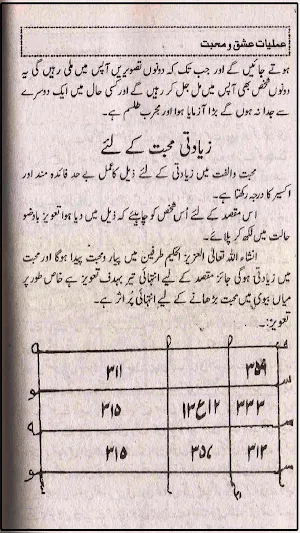 عملیات عشق و محبت
ہوتے جائیں گے اور جب تک کہ دونوں تصویریں آپس میں ملی رہیں گی یہ
دونوں شخص بھی آپس میں مل جل کر رہیں گے اور کسی حال میں ایک دوسرے
سے جدا نہ ہوں گے بڑا آزمایا ہوا اور مجرب طلسم ہے۔
زیادتی محبت کے لئے
محبت والفت میں زیادتی کے لئے ذیل کا عمل بے حد فائدہ مند اور
اکسیر کا درجہ رکھتا ہے۔
اس مقصد کے لئے اُس شخص کو چاہیئے کہ ذیل میں دیا ہوا تعویز باوضو
حالت میں لکھ کر پلائے۔
انشاء اللہ تعالی العزیز الحکیم طرفین میں پیار ومحبت پیدا ہوگا اور محبت
میں زیادتی ہوگی جائز مقصد کے لیے انتہائی تیر بہدف تعویز ہے خاص طور پر
میاں بیوی میں محبت بڑھانے کے لیے انتہائی پُر اثر ہے۔
تعویز:۔
۳۵۹ ۳۱۱
۳۳۳ ۱۲ع۱۳ ۳۱۵
۳۱۲ ۳۵۷ ۳۱۵